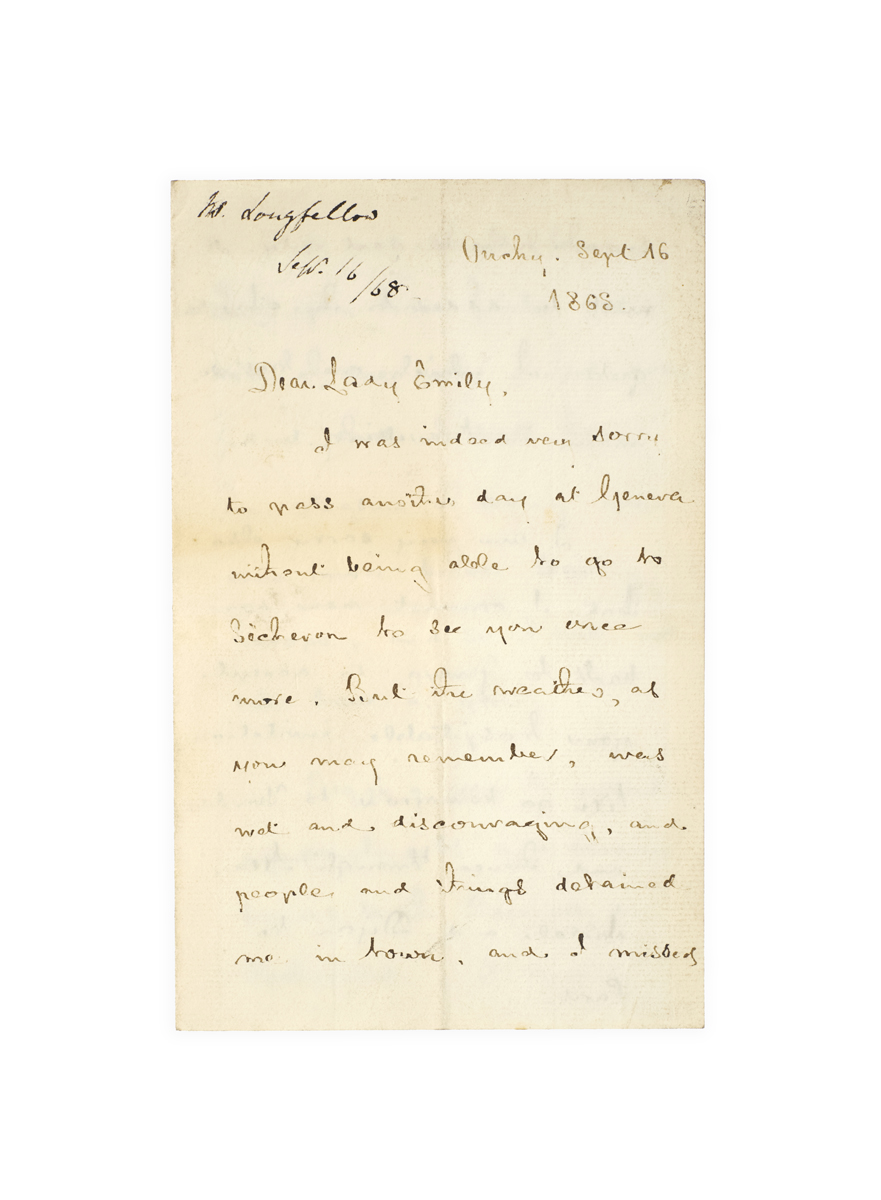 Mr. Longfellow
Sept. 16/68
Ouchy. Sept 16
1868.
Dear Lady Emily,
I was indeed very sorry
to pass another day at Geneva
without being able to go to
Sécheron to see you once
more. But the weather, as
you may remember, was
wet and discouraging, and
people and things detained
me in town, and I missed